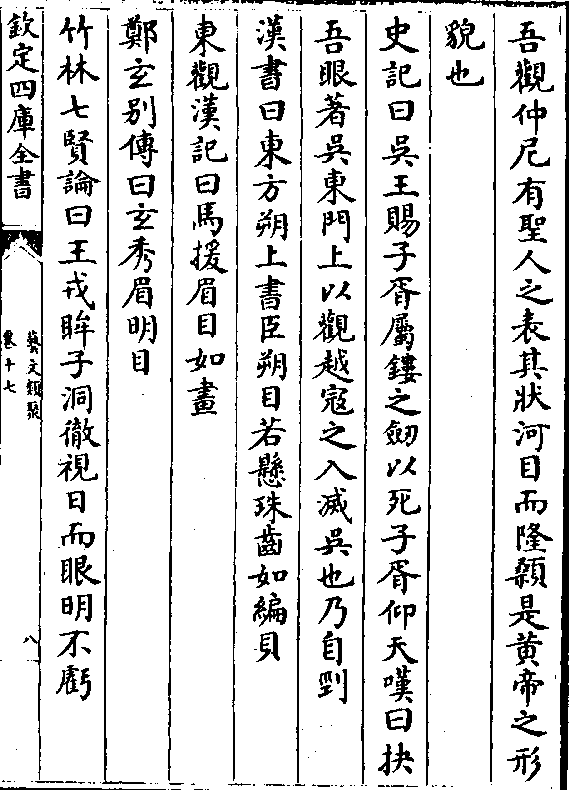 吾觀仲尼有聖人之表其狀河目而隆顙是黄帝之形
貌也
史記曰吳王賜子胥屬鏤之劒以死子胥仰天嘆曰抉
吾眼著吳東門上以觀越寇之入滅吳也乃自剄
漢書曰東方朔上書臣朔目若懸珠齒如編貝
東觀漢記曰馬援眉目如畫
鄭玄别傳曰玄秀眉明目
竹林七賢論曰王戎眸子洞徹視日而眼明不虧
欽定四庫全書
藝文類聚
卷十七
八